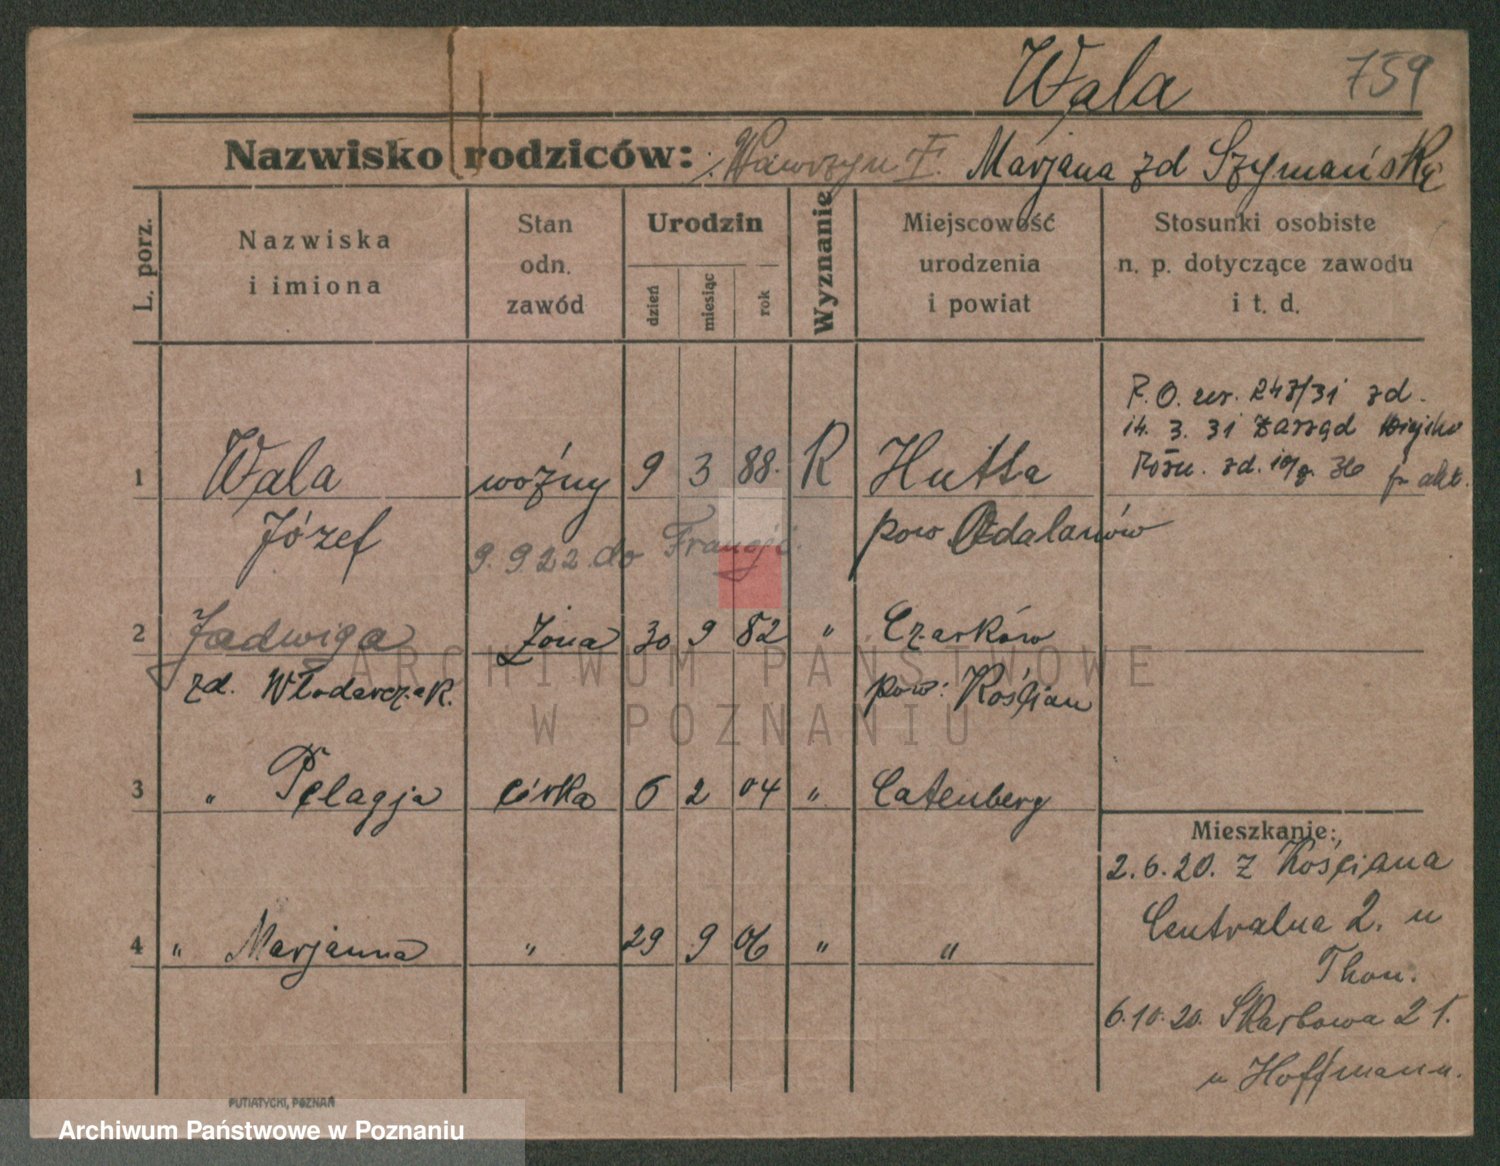 Wala 759
Nazwisko rodziców: Wawrzyn F. Marjana zd Szymańską
L. porz.
Nazwiska
i imiona
Stan
odn.
zawód
Urodzin
dzień
miesiąc
rok
Wyznanie
Miejscowość
urodzenia
i powiat
Stosunki osobiste
n. p. dotyczące zawodu
i t. d.
1 Wala woźny 9 3 88. R Hutta
Józef pow Odalanów
9. 9. 22. do Francji.
zd.
14. 3. 31 Zarząd
zd. 36
2 Jadwiga żona 30 9 82 " Czarków
zd. Włodarczak. pow: Kościan
3 " Pelagja córka 6 2 04 " Catenberg
4 " Marjanna " 29 9 06 " "
Mieszkanie:
2.6.20. z Kościana
Centralna 2. u
Thon.
6.10.20. Skarbowa 21.
u Hoffmann.
PUTIATYCKI, POZNAŃ
ARCHIWUM PAŃSTWOWE
W POZNANIU
Archiwum Państwowe w Poznaniu